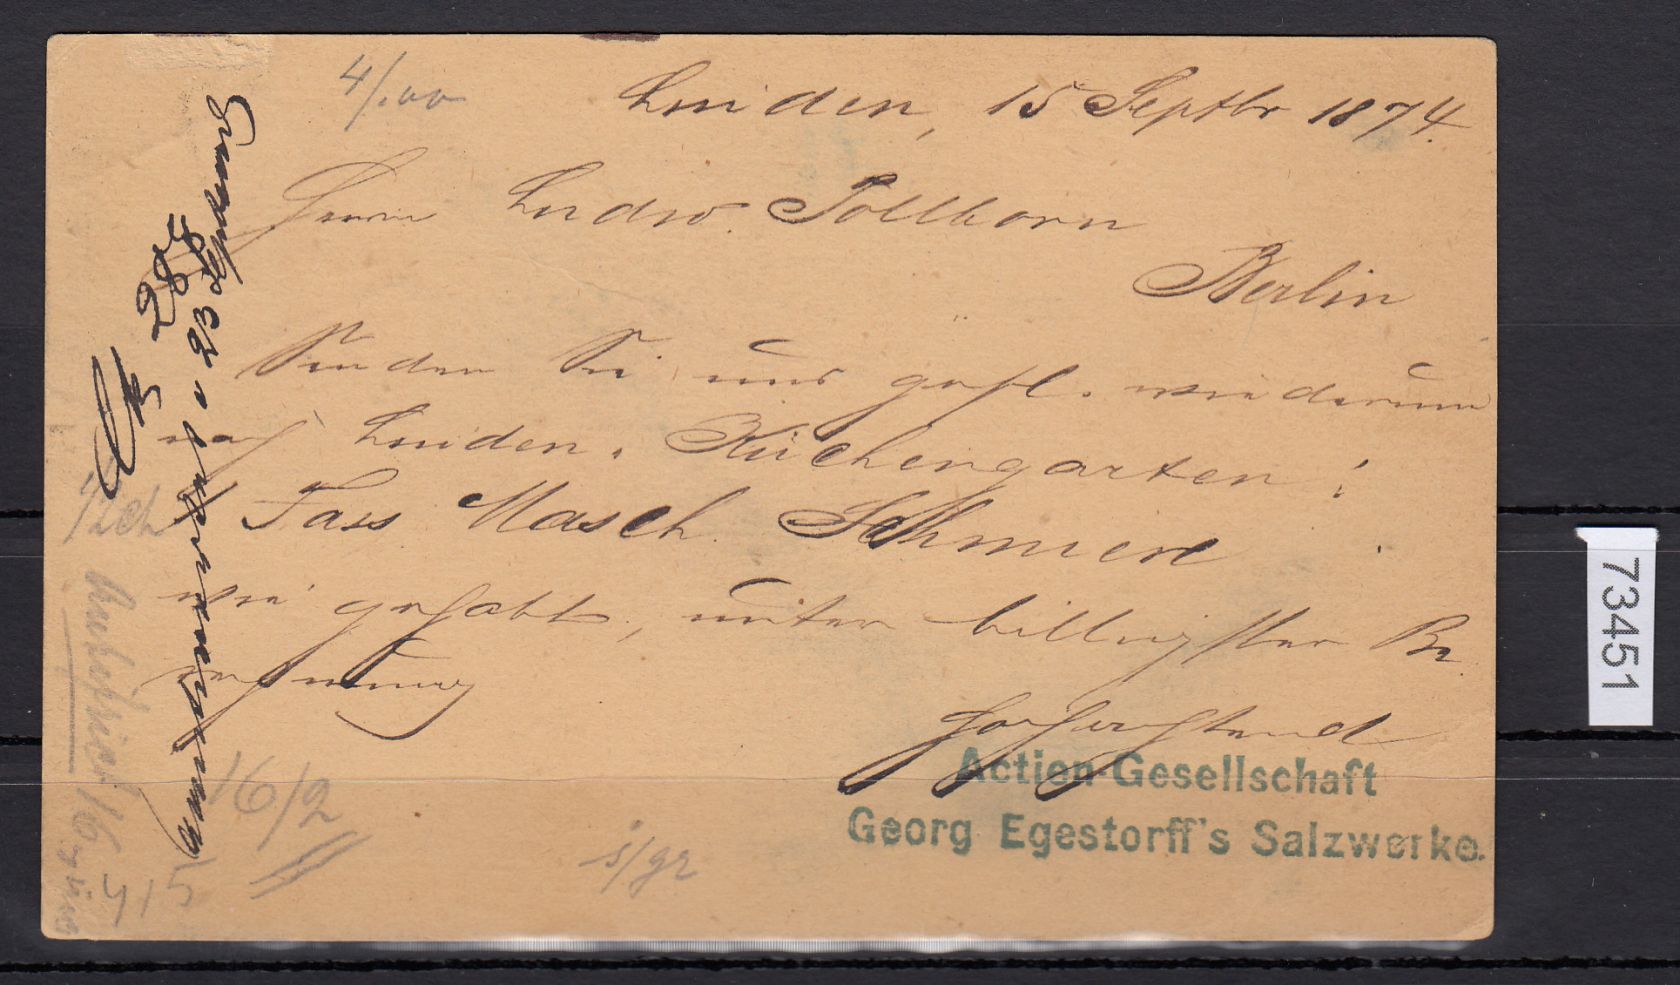 4/100
Linden, 15 Septbr 1874.
Herrn Ludw. Sollborn
Berlin
Senden Sie uns gefl. wiederum
nach Linden, Küchengarten:
1 Fass Masch. Schmiere
wie gehabt, unter billigster Be
rechnung
Hochachtend
Actien-Gesellschaft
Georg Egestorff's Salzwerke.
28
23 September
16/2
73451